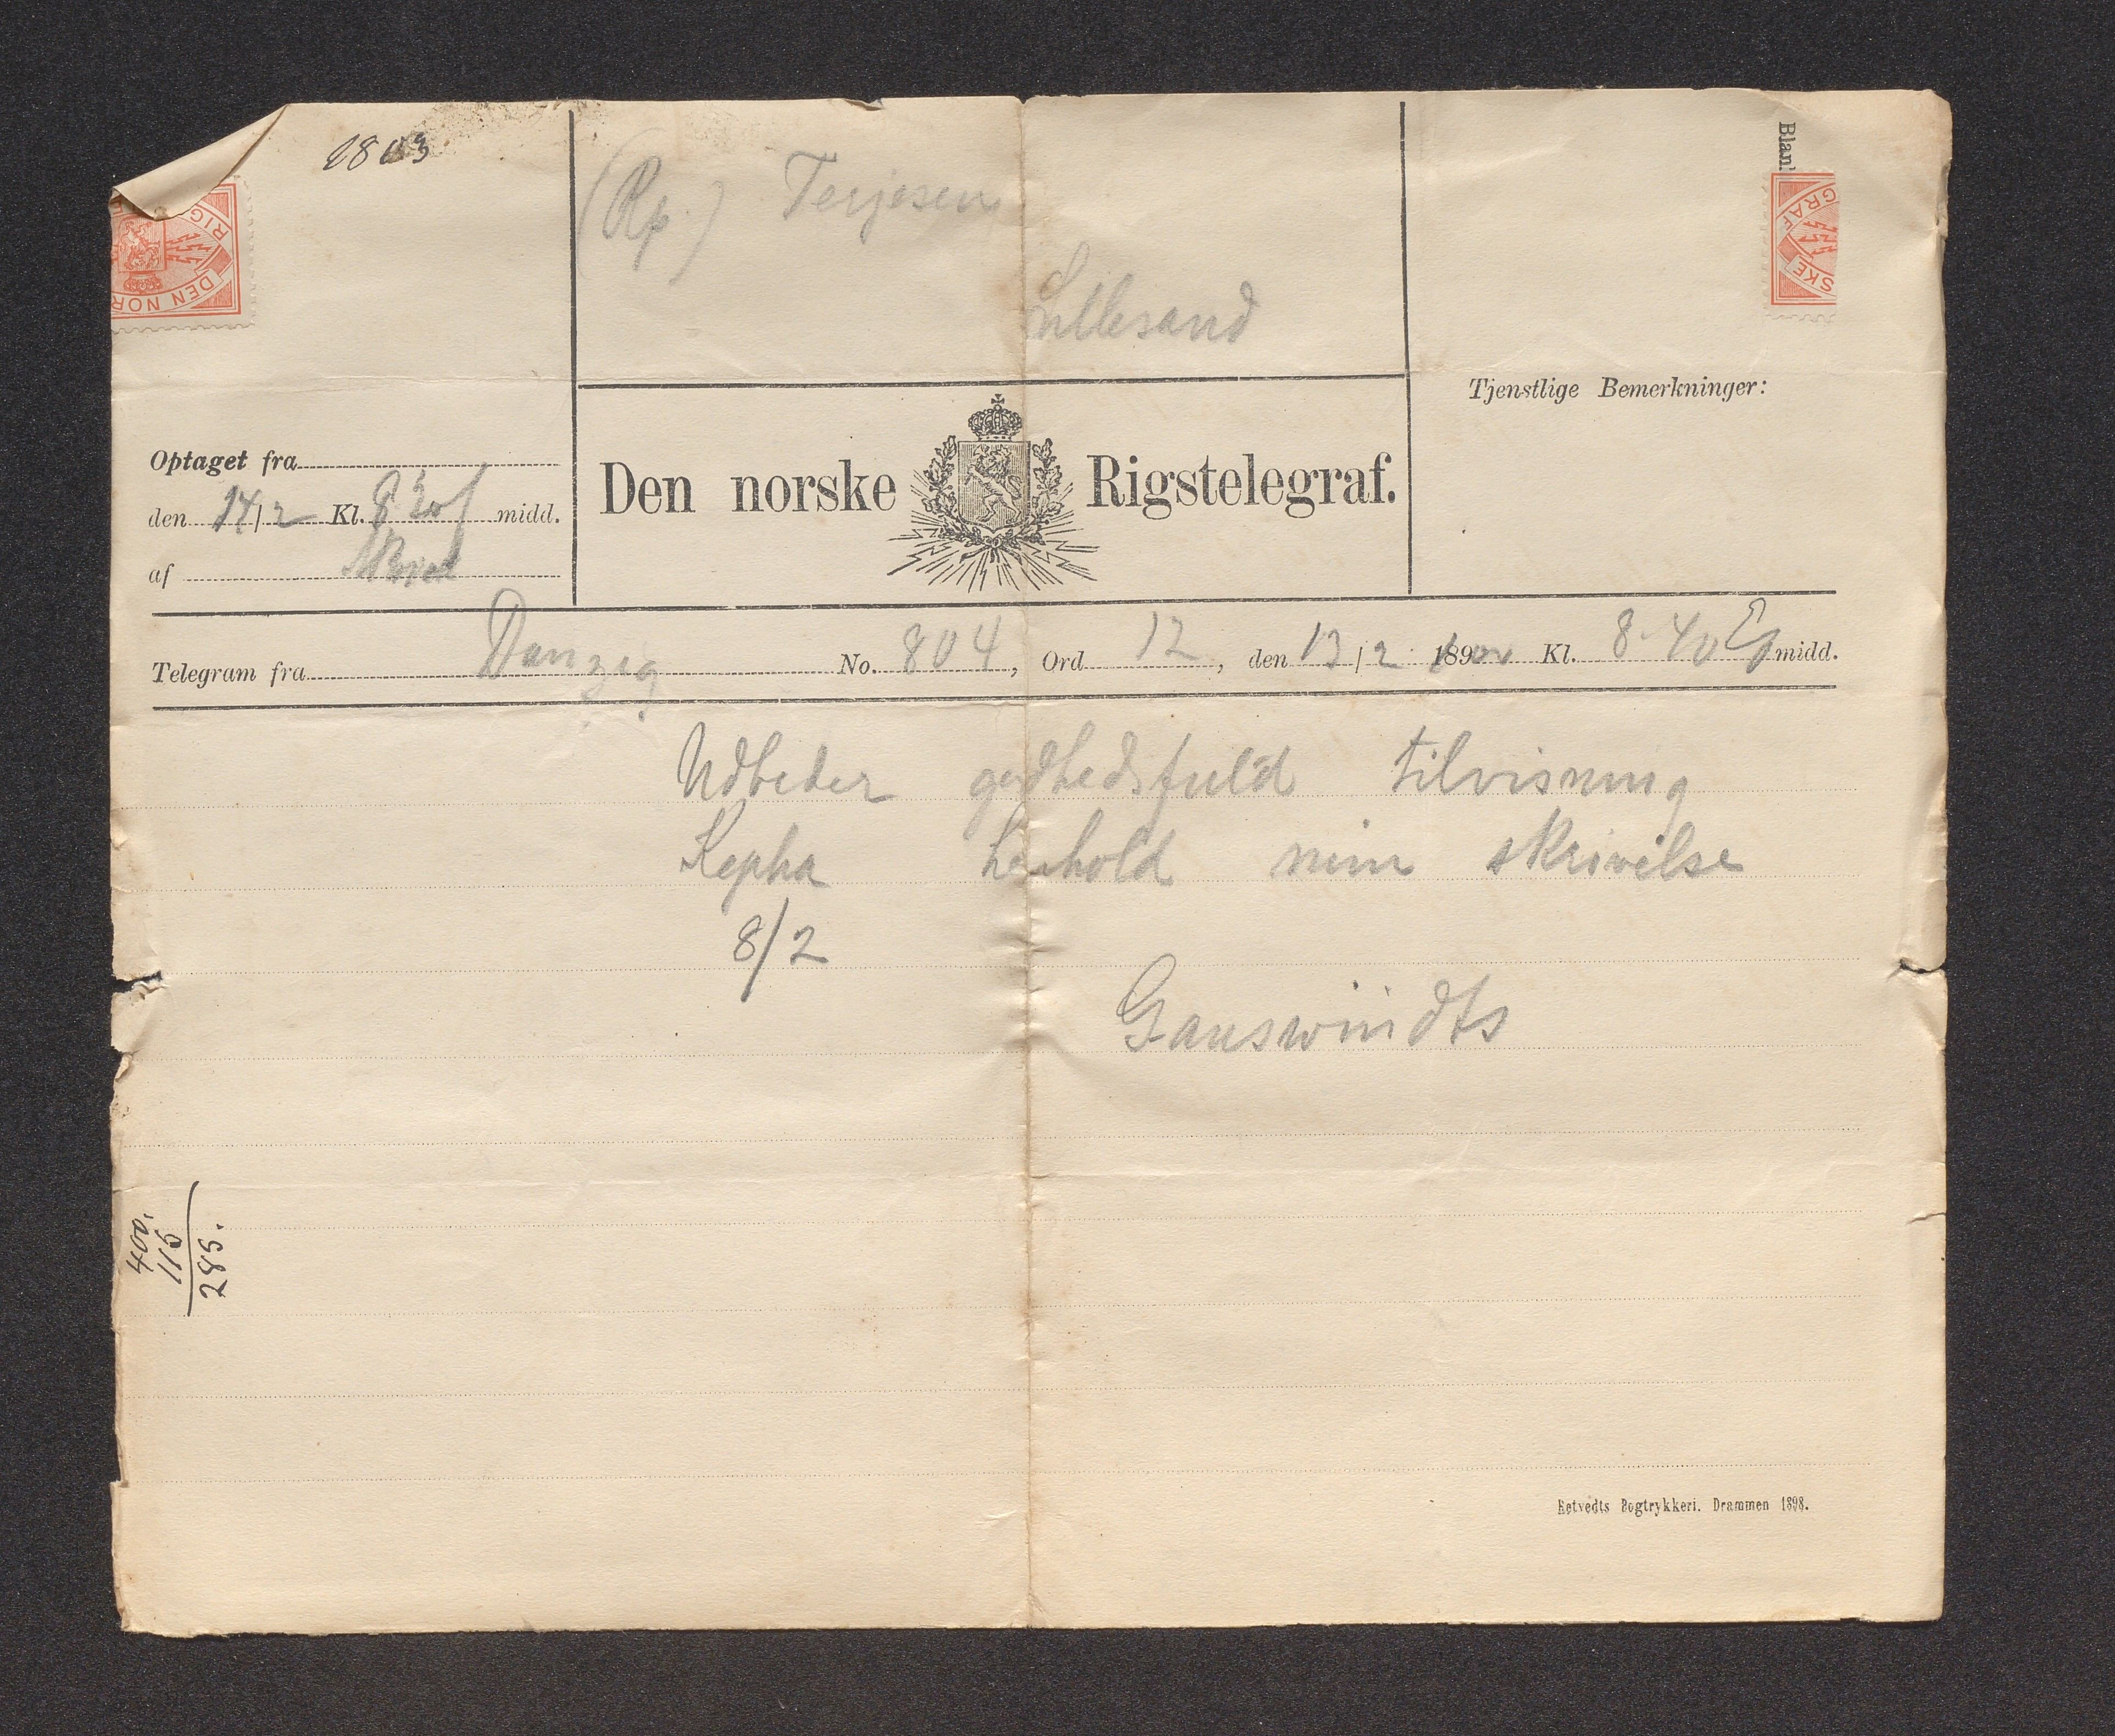 1803
(Rp.) Terjesen
Lillesand
Blan
RIG
DEN NOR
GRAF
SKE
Tjenstlige Bemerkninger:
Optaget fra
den 14/2 Kl. 8 20 f midd.
af
Den norske Rigstelegraf.
Telegram fra Danzig No. 804, Ord 12, den 13/2 189 Kl. 8 40 E midd.
Udbeder godhedsfuld tilvisning
Kepha henhold min skrivelse
8/2
Ganswindts
400.
115
285.
Røtvedts Bogtrykkeri. Drammen 1898.